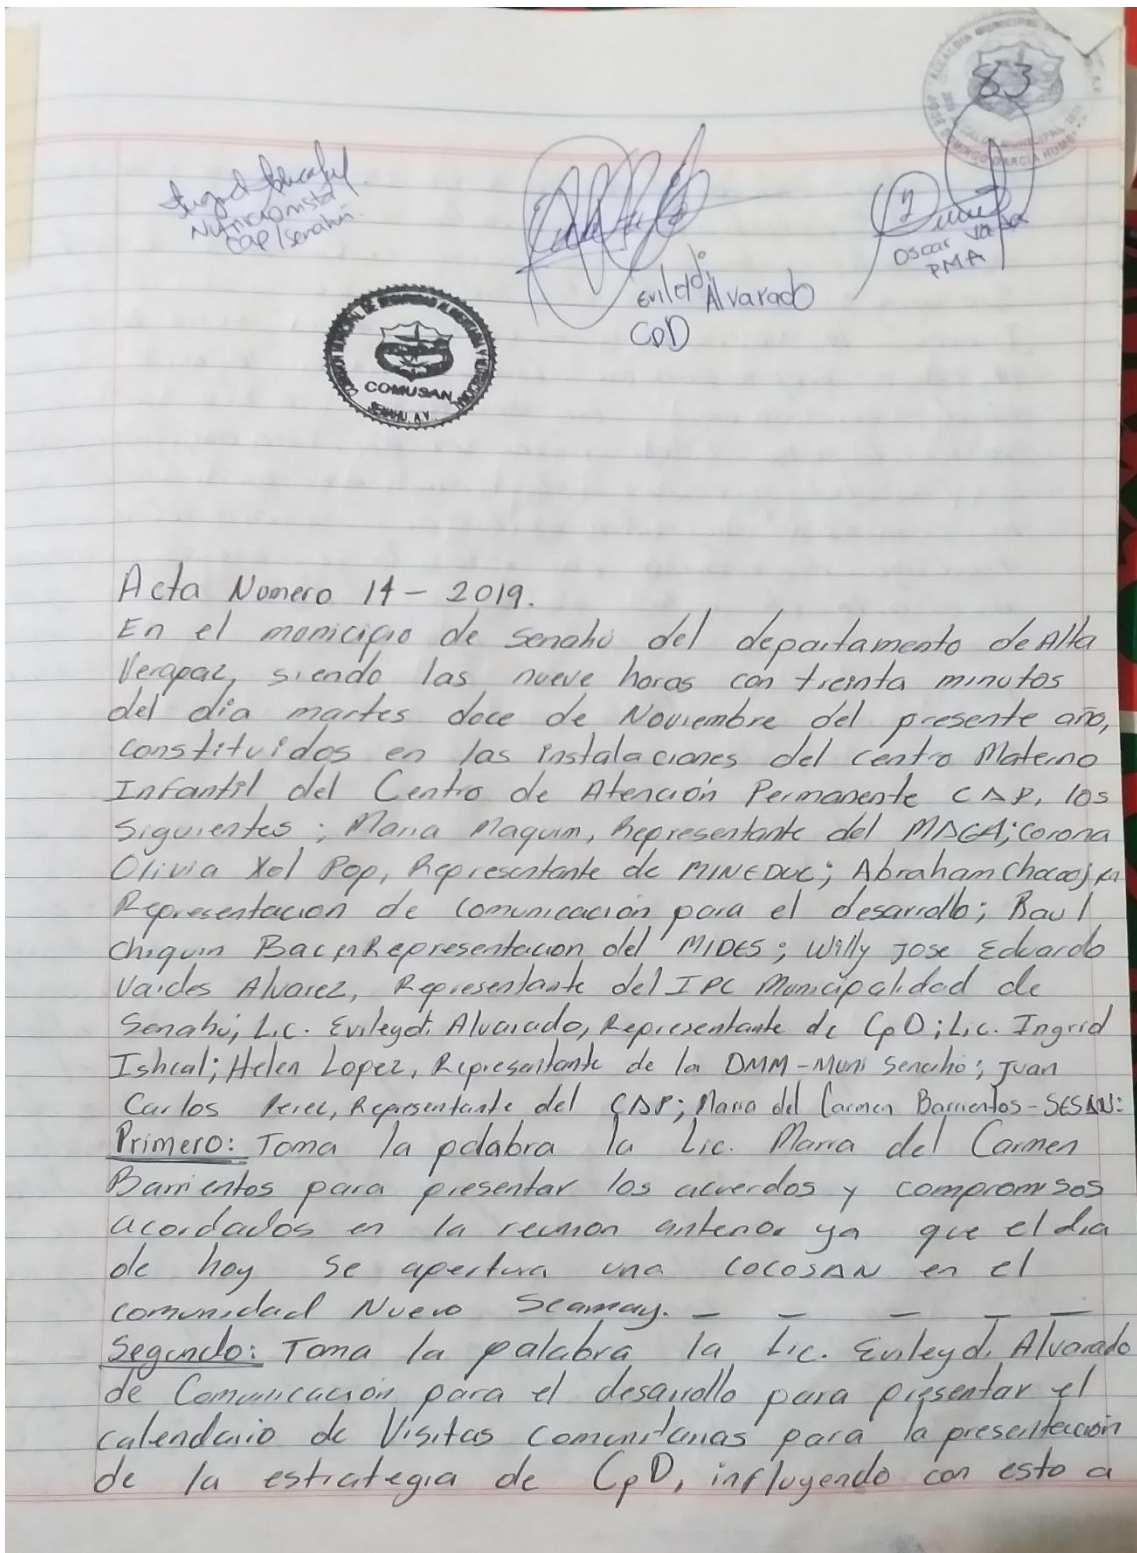 83
Nutricionista
CAP/Senahú
Evileydi Alvarado
CpD
Oscar
PMA
COMUSAN
SENAHU, A.V.
Acta Numero 14 - 2019.
En el municipio de Senahú del departamento de Alta
Verapaz, siendo las nueve horas con treinta minutos
del día martes doce de Noviembre del presente año,
constituidos en las instalaciones del centro Materno
Infantil del Centro de Atención Permanente CAP, los
siguientes; Maria Maquim, Representante del MAGA; Corona
Olivia Xol Pop, Representante de MINEDUC; Abraham Chocooj en
Representacion de comunicación para el desarrollo; Raul
Chiquin Bac en Representacion del MIDES; Willy Jose Eduardo
Valdes Alvarez, Representante del IPC Municipalidad de
Senahú; Lic. Evileydi Alvarado, Representante de CpD; Lic. Ingrid
Ishcal; Helen Lopez, Representante de la DMM-Muni Senahú; Juan
Carlos Perez, Representante del CAP; Maria del Carmen Barrientos-SESAN:
Primero: Toma la palabra la Lic. Maria del Carmen
Barrientos para presentar los acuerdos y compromisos
acordados en la reunion anterior ya que el dia
de hoy se apertura una COCOSAN en el
comunidad Nuevo Seamay. — — — — —
Segundo: Toma la palabra la Lic. Evileydi Alvarado
de Comunicación para el desarrollo para presentar el
calendario de Visitas Comunitarias para la presentación
de la estrategia de CpD, influyendo con esto a